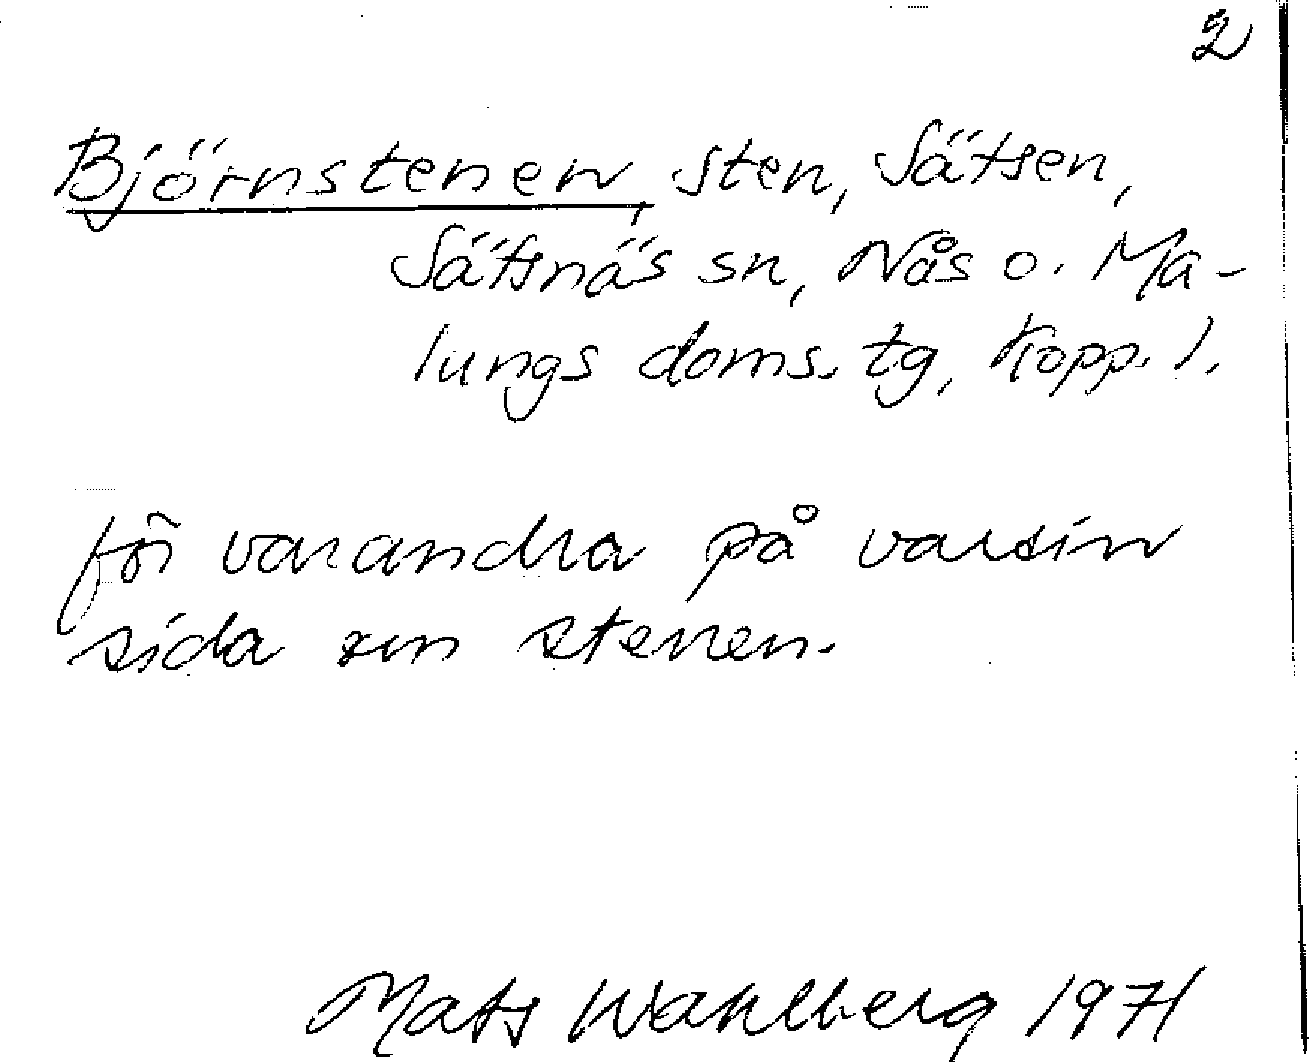 2
Björnstenen, sten, Sätsen,
Sätsnäs sn, Nås o. Ma-
lungs doms. tg, Kopp. l.
för varandra på varsin
sida om stenen.
Mats Wahlberg 1971